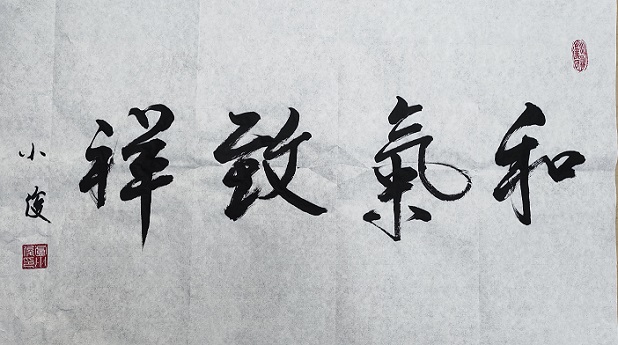 和氣致祥
小俊